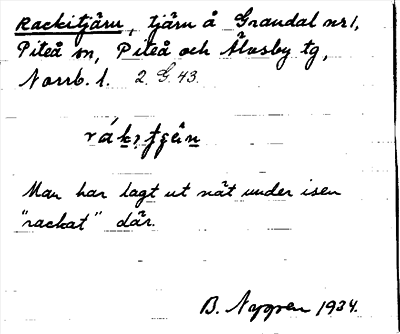 Rackitjärn, tjärn å Grandal nr 1,
Piteå sn, Piteå och Älvsby tg,
Norrb. l. 2. G. 43.
Man har lagt ut nät under isen
"rackat" där.
B. Nygren 1934.